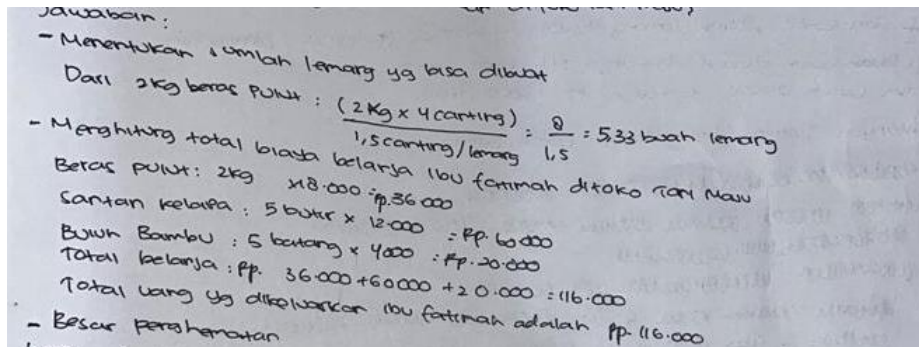 Jawaban :
- Menentukan jumlah lemang yg bisa dibuat
Dari 2kg beras pulut : (2 Kg x 4 canting) / 1,5 canting/lemang = 8 / 1,5 = 5,33 buah lemang
- Menghitung total biaya belanja ibu fatimah ditoko Tani Maju
Beras pulut : 2kg x18.000 = Rp.36.000
Santan kelapa : 5 butir x 12.000 = Rp. 60.000
Buluh Bambu : 5 batang x 4000 = Rp. 20.000
Total belanja : Rp. 36.000 + 60000 + 20.000 = 116.000
Total uang yg dikeluarkan ibu fatimah adalah Rp. 116.000
- Besar penghematan